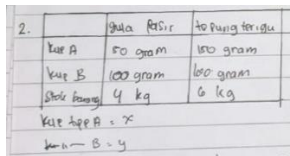 2. gula pasir tepung terigu
kue A 50 gram 150 gram
kue B 100 gram 100 gram
Stok barang 4 kg 6 kg
kue tipe A = x
B = y